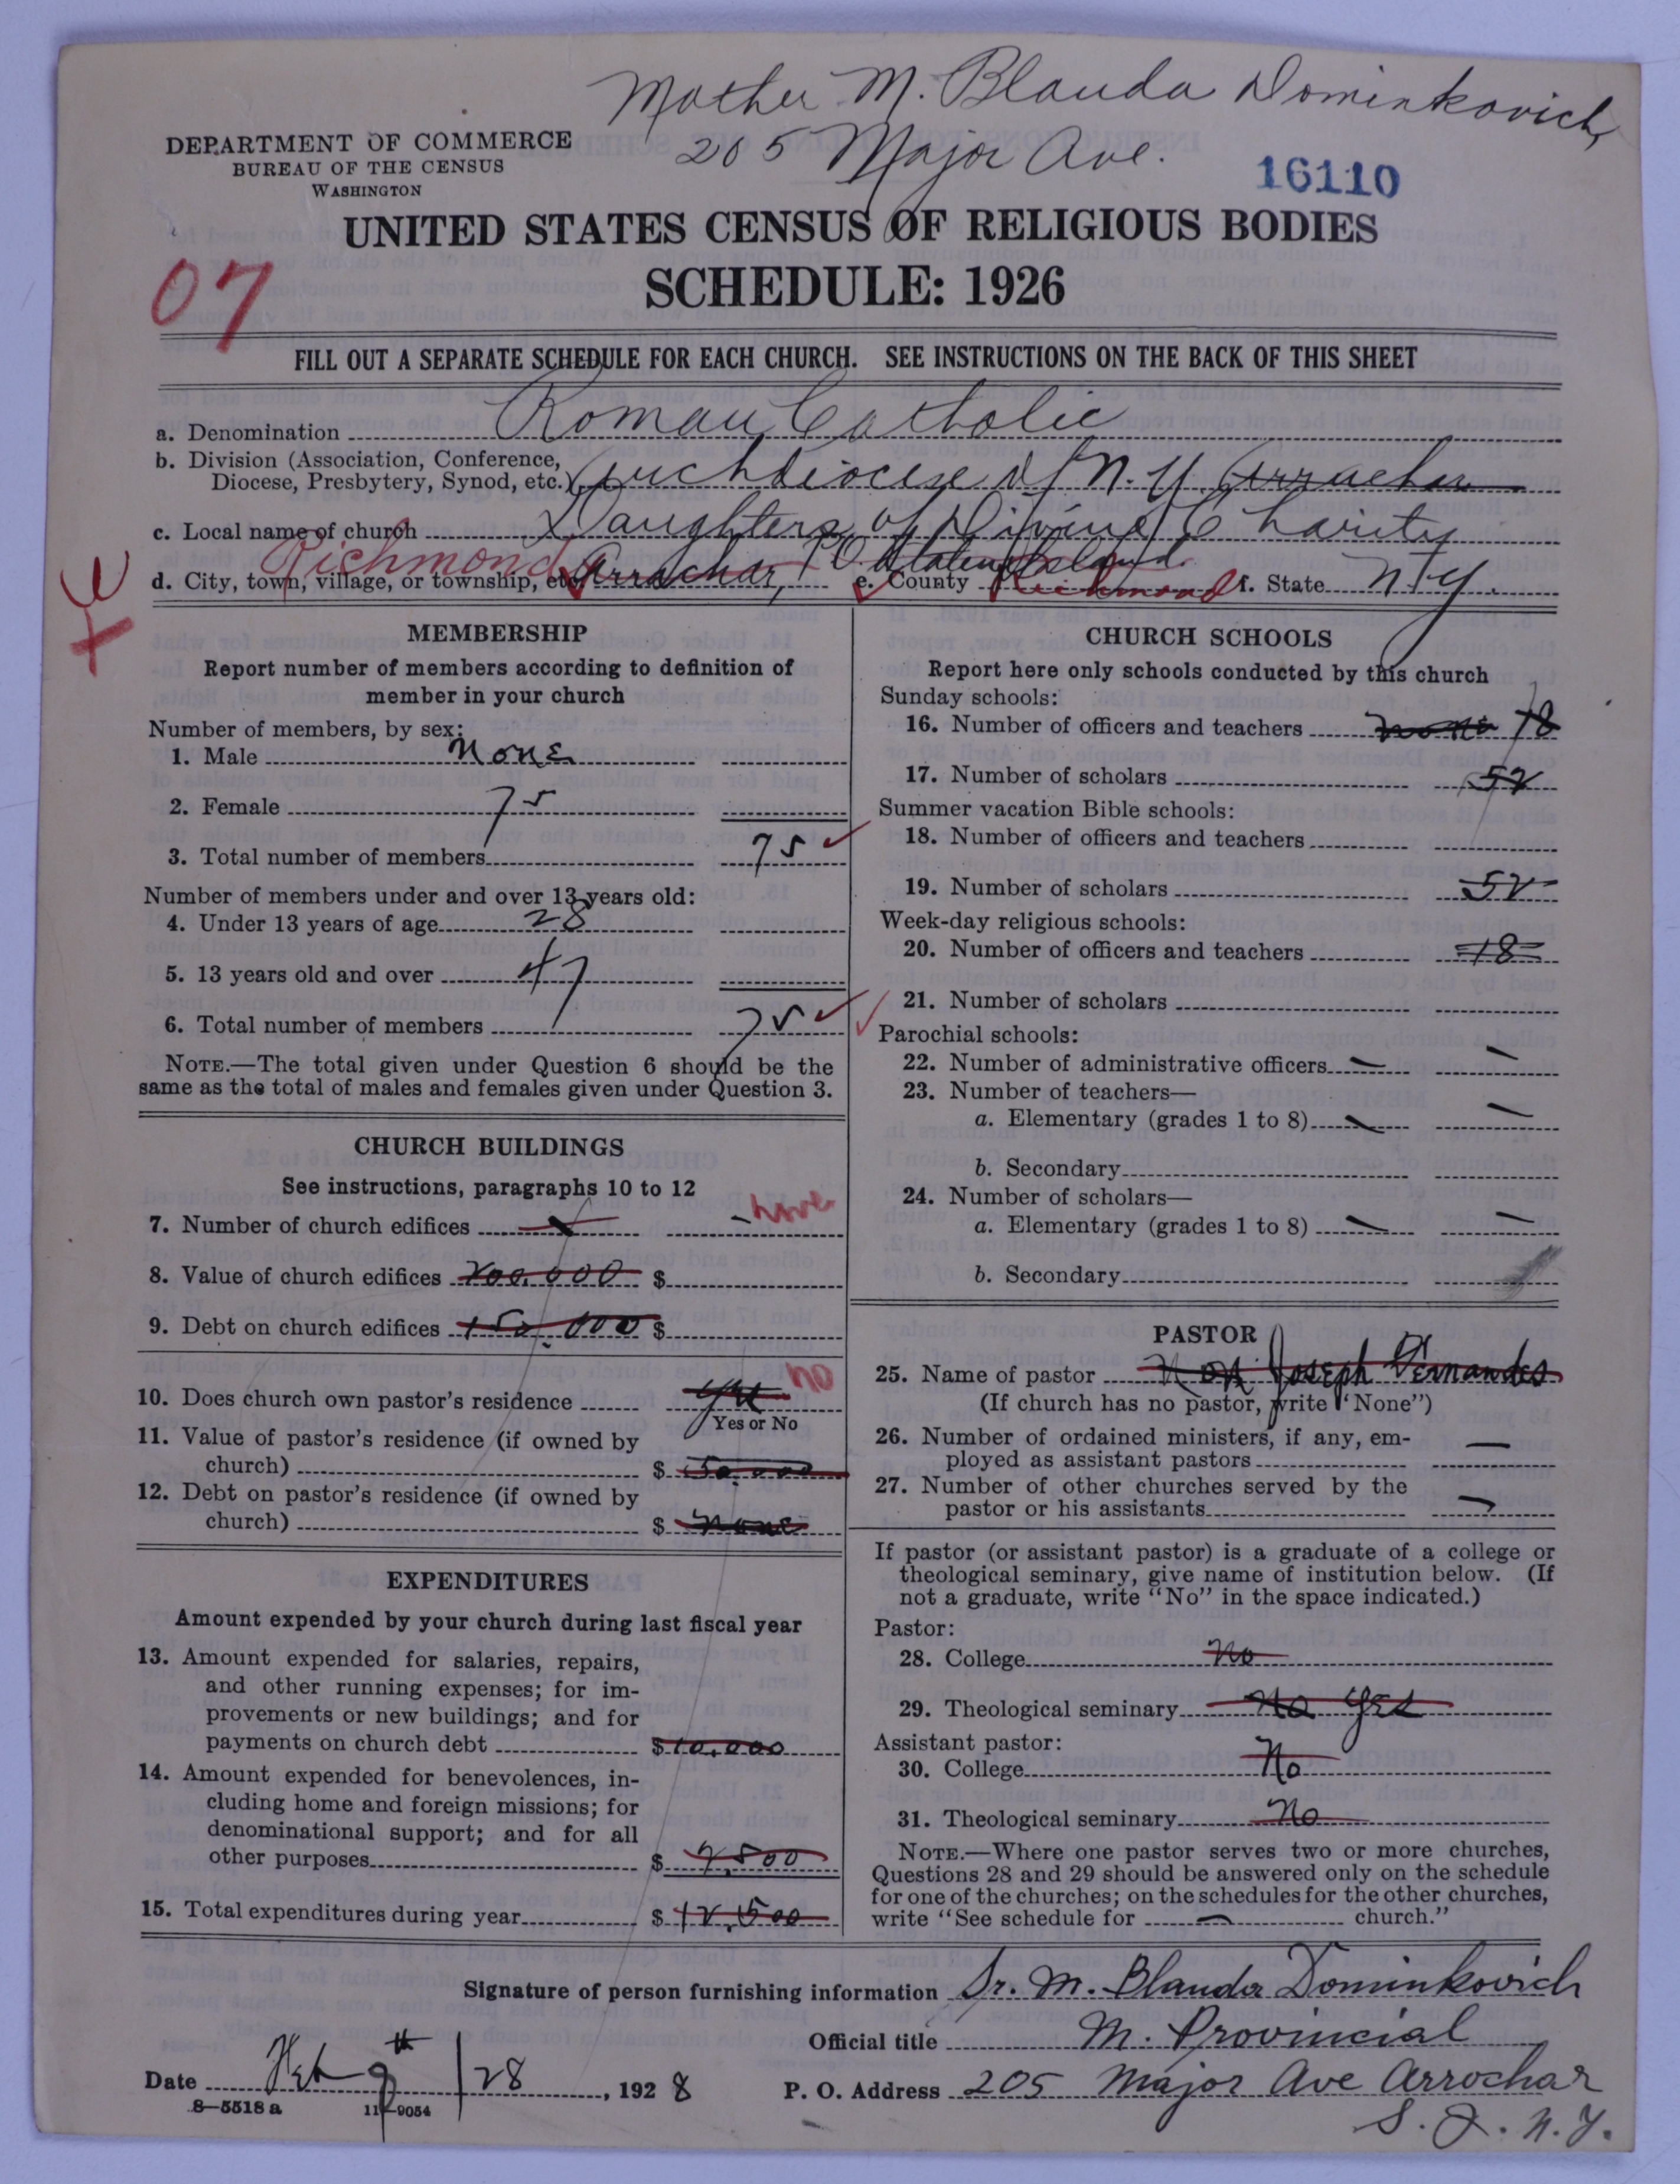 Mother M. Blanda Dominkovich,
205 Major Ave.
DEPARTMENT OF COMMERCE
BUREAU OF THE CENSUS
WASHINGTON
16110
UNITED STATES CENSUS OF RELIGIOUS BODIES
07
SCHEDULE: 1926
FILL OUT A SEPARATE SCHEDULE FOR EACH CHURCH. SEE INSTRUCTIONS ON THE BACK OF THIS SHEET
a. Denomination Roman Catholic
b. Division (Association, Conference, Diocese, Presbytery, Synod, etc.) Archdiocese of N. Y. Arrochar
c. Local name of church Daughters of Divine Charity
Richmond
d. City, town, village, or township, etc. Arrochar, P.O. Staten Island. e. County Richmond f. State N. Y.
MEMBERSHIP
Report number of members according to definition of
member in your church
Number of members, by sex:
1. Male none
2. Female 75
3. Total number of members 75
Number of members under and over 13 years old:
4. Under 13 years of age 28
5. 13 years old and over 47
6. Total number of members 75
NOTE.—The total given under Question 6 should be the
same as the total of males and females given under Question 3.
CHURCH BUILDINGS
See instructions, paragraphs 10 to 12
7. Number of church edifices
8. Value of church edifices 200.000 $
9. Debt on church edifices 150.000 $
10. Does church own pastor's residence yes no
Yes or No
11. Value of pastor's residence (if owned by
church) $ 50.000
12. Debt on pastor's residence (if owned by
church) $ none
EXPENDITURES
Amount expended by your church during last fiscal year
13. Amount expended for salaries, repairs,
and other running expenses; for im-
provements or new buildings; and for
payments on church debt $ 10.000
14. Amount expended for benevolences, in-
cluding home and foreign missions; for
denominational support; and for all
other purposes $ 2.500
15. Total expenditures during year $ 12.500
CHURCH SCHOOLS
Report here only schools conducted by this church
Sunday schools:
16. Number of officers and teachers none 18
17. Number of scholars 52
Summer vacation Bible schools:
18. Number of officers and teachers
19. Number of scholars 52
Week-day religious schools:
20. Number of officers and teachers 18
21. Number of scholars
Parochial schools:
22. Number of administrative officers — —
23. Number of teachers—
a. Elementary (grades 1 to 8) — —
b. Secondary
24. Number of scholars—
a. Elementary (grades 1 to 8) — —
b. Secondary
PASTOR
25. Name of pastor Joseph Fernandes
(If church has no pastor, write "None")
26. Number of ordained ministers, if any, em-
ployed as assistant pastors —
27. Number of other churches served by the
pastor or his assistants —
If pastor (or assistant pastor) is a graduate of a college or
theological seminary, give name of institution below. (If
not a graduate, write "No" in the space indicated.)
Pastor:
28. College No
29. Theological seminary No yes
Assistant pastor:
30. College No
31. Theological seminary No
NOTE.—Where one pastor serves two or more churches,
Questions 28 and 29 should be answered only on the schedule
for one of the churches; on the schedules for the other churches,
write "See schedule for — church."
Signature of person furnishing information Sr. M. Blanda Dominkovich
Official title M. Provincial
Date Feb 9th / 28, 1928
P. O. Address 205 Major Ave Arrochar
S. I. N.Y.
8—5518 a 11—9054